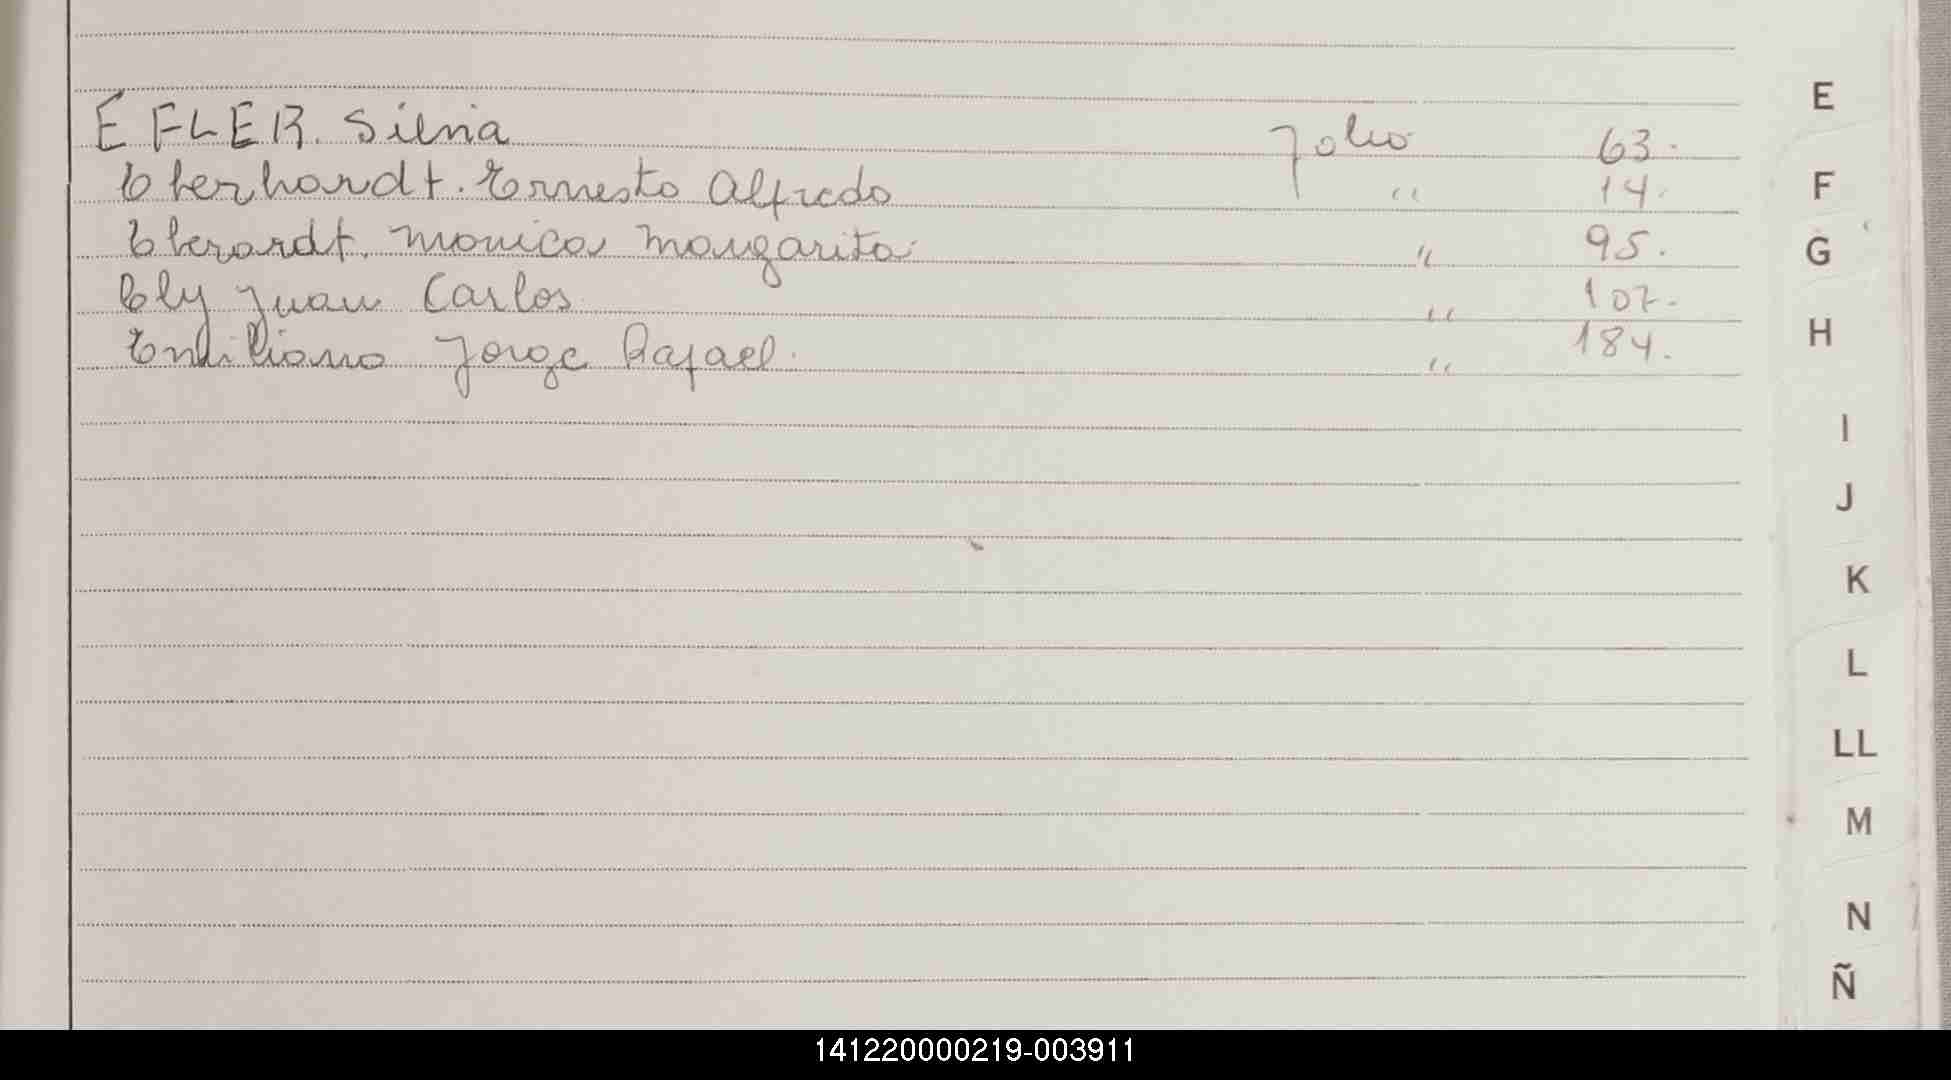 EFLER. Silvia Folio 63.
Eberhardt. Ernesto Alfredo " 14.
Eberardt. Monica Margarita " 95.
Ely Juan Carlos " 107.
Emiliano Jorge Rafael. " 184.
E
F
G
H
I
J
K
L
LL
M
N
Ñ
141220000219-003911